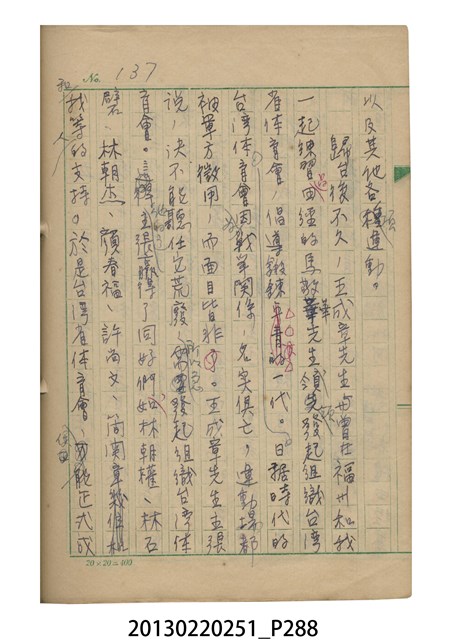 No. 137
以及其他各項運動。
歸台後不久，王成章先生也曾在福州和我
一起練習過的馬敬華先生領先發起組織台灣
省体育會，倡導鍛鍊年青的一代。日据時代的
台湾体育會因戰爭関係，名实俱亡，運動場都
被軍方徵用，而面目皆非。王成章先生主張
说，决不能聽任它荒廢，發起組織台湾体
育會。他的主張贏得了同好們如林朝權、林石
、林朝杰、顏春福、許尚文、简関章幾位和
我等的支持。於是台湾省体育會，正式成
20×20=400
20130220251_P288